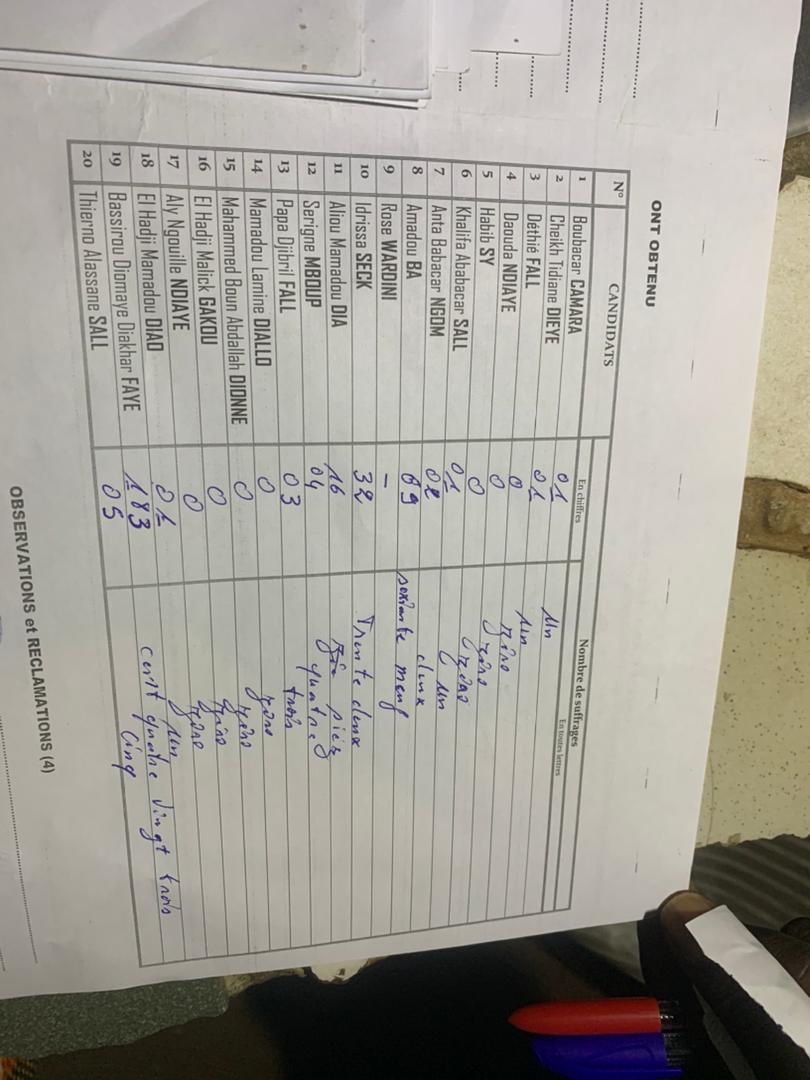 ONT OBTENU
N° CANDIDATS Nombre de suffrages
En chiffres En toutes lettres
1 Boubacar CAMARA 01 un
2 Cheikh Tidiane DIEYE 01 un
3 Déthié FALL 0 zéro
4 Daouda NDIAYE 0 zéro
5 Habib SY 0 zéro
6 Khalifa Ababacar SALL 01 un
7 Anta Babacar NGOM 02 deux
8 Amadou BA 69 soixante neuf
9 Rose WARDINI -
10 Idrissa SECK 32 Trente deux
11 Aliou Mamadou DIA 16
12 Serigne MBOUP 04 quatre
13 Papa Djibril FALL 03 trois
14 Mamadou Lamine DIALLO 0 zéro
15 Mahammed Boun Abdallah DIONNE 0 zéro
16 El Hadji Malick GAKOU 0 zéro
17 Aly Ngouille NDIAYE 0 zéro
18 El Hadji Mamadou DIAO 01 un
19 Bassirou Diomaye Diakhar FAYE 183 cent quatre vingt trois
20 Thierno Alassane SALL 05 cinq
OBSERVATIONS et RECLAMATIONS (4)